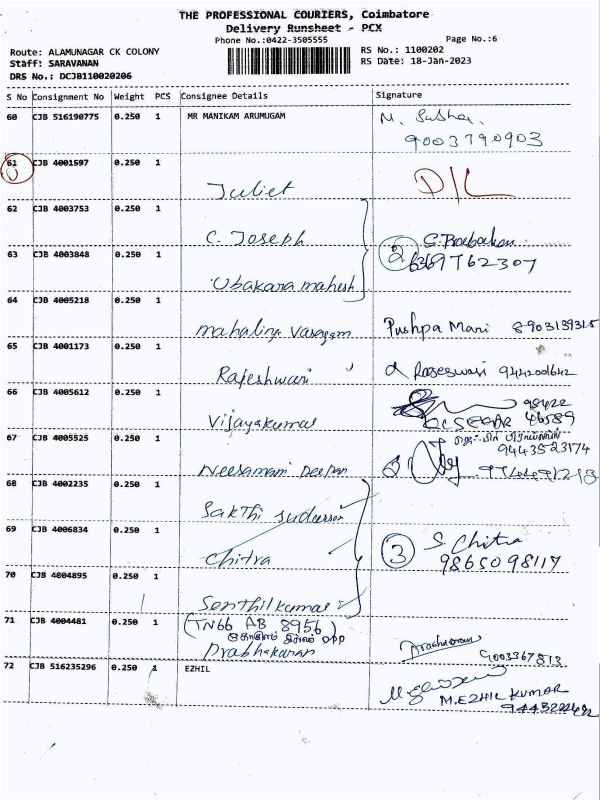 THE PROFESSIONAL COURIERS, Coimbatore
Delivery Runsheet - PCX
Phone No.:0422-3505555
Page No.:6
Route: ALAMUNAGAR CK COLONY
Staff: SARAVANAN
DRS No.: DCJB110020206
RS No.: 1100202
RS Date: 18-Jan-2023
S No Consignment No Weight PCS Consignee Details Signature
60 CJB 516190775 0.250 1 MR MANIKAM ARUMUGAM M. Subha.
9003790903
61 CJB 4001597 0.250 1
Juliet D/L
62 CJB 4003753 0.250 1
C. Joseph
63 CJB 4003848 0.250 1 2
6369762307
Ubakara mahesh
64 CJB 4005218 0.250 1
Pushpa Mari
65 CJB 4001173 0.250 1
Rajeshwari 9442001642
66 CJB 4005612 0.250 1 98422
Vijayakumar 46589
67 CJB 4005525 0.250 1
9443523174
Deepan
68 CJB 4002235 0.250 1
Sakthi
69 CJB 4006834 0.250 1 3 S. Chitra
Chitra 9865098117
70 CJB 4004895 0.250 1
Senthilkumar
71 CJB 4004481 0.250 1 (TN66 AB 8956)
Prabhakaran 9003367813
72 CJB 516235296 0.250 1 EZHIL
M.EZHIL KUMAR